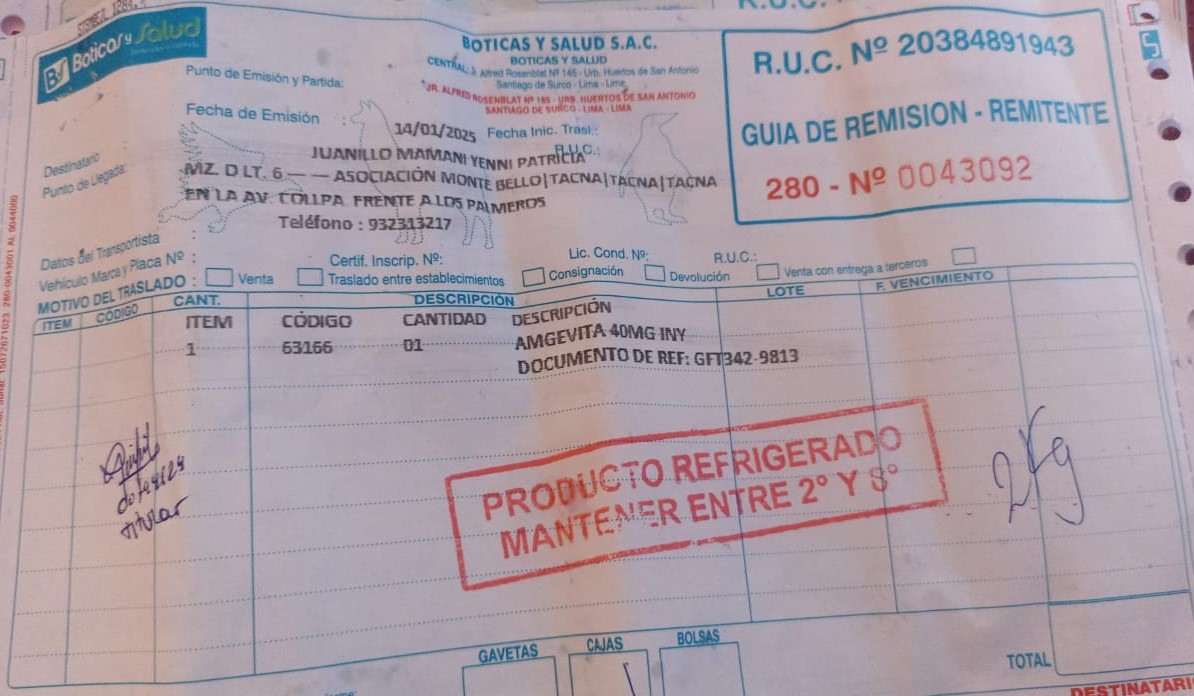 Boticas y Salud
BOTICAS Y SALUD S.A.C.
BOTICAS Y SALUD
CENTRAL: Jr. Alfred Rosenblat Nº 145 - Urb. Huertos de San Antonio
Santiago de Surco - Lima - Lima
Punto de Emisión y Partida:
*JR. ALFRED ROSENBLAT Nº 165 - URB. HUERTOS DE SAN ANTONIO
SANTIAGO DE SURCO - LIMA - LIMA
R.U.C. Nº 20384891943
GUIA DE REMISION - REMITENTE
280 - Nº 0043092
Fecha de Emisión : 14/01/2025 Fecha Inic. Trasl.:
Destinatario JUANILLO MAMANI YENNI PATRICIA R.U.C.:
Punto de Llegada: MZ. D LT. 6 — — ASOCIACIÓN MONTE BELLO|TACNA|TACNA|TACNA
EN LA AV. COLLPA FRENTE A LOS PALMEROS
Teléfono : 932313217
Datos del Transportista :
Vehículo Marca y Placa Nº : Certif. Inscrip. Nº: Lic. Cond. Nº: R.U.C.:
MOTIVO DEL TRASLADO : Venta Traslado entre establecimientos Consignación Devolución Venta con entrega a terceros
ITEM CÓDIGO CANT. DESCRIPCIÓN LOTE F. VENCIMIENTO
ITEM CÓDIGO CANTIDAD DESCRIPCIÓN
1 63166 01 AMGEVITA 40MG INY
DOCUMENTO DE REF: GFT342-9813
PRODUCTO REFRIGERADO
MANTENER ENTRE 2° Y 8°
titular
2Kg
GAVETAS CAJAS BOLSAS
TOTAL
DESTINATARIO